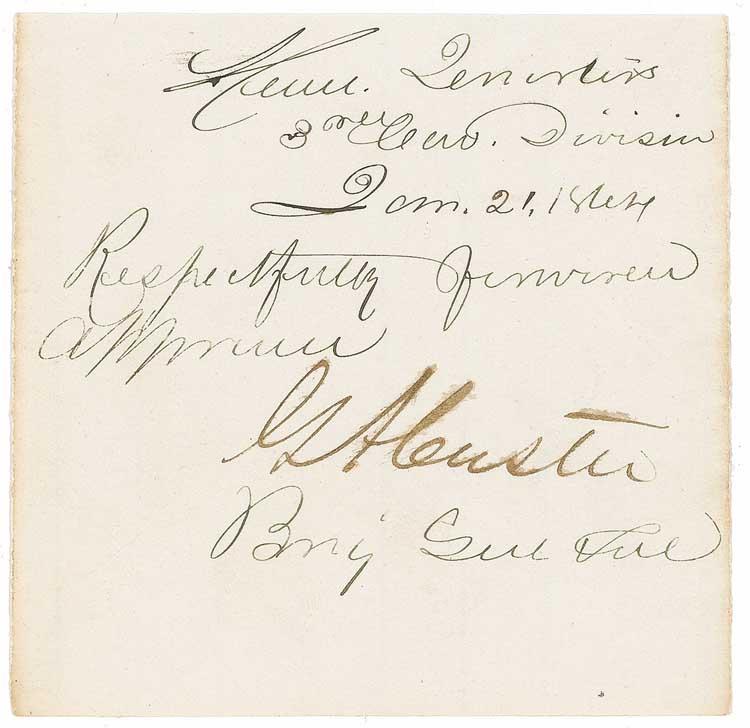 Head Quarters
3rd Cav. Division
Jan. 21, 1864
Respectfully forwarded
approved
G A Custer
Brig Genl &c